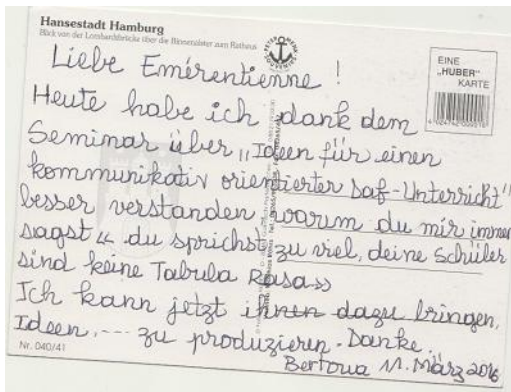 Hansestadt Hamburg
Blick von der Lombardsbrücke über die Binnenalster zum Rathaus
EINE
„HUBER"
KARTE
Liebe Emérentienne !
Heute habe ich dank dem
Seminar über „Ideen für einen
kommunikativ orientierter Daf-Unterricht"
besser verstanden, warum du mir immer
sagst « du sprichst zu viel, deine Schüler
sind keine Tabula Rasa»
Ich kann jetzt ihnen dazu bringen,
Ideen .--- zu produzieren. Danke.
Bertoua 11. März 2016
Nr. 040/41